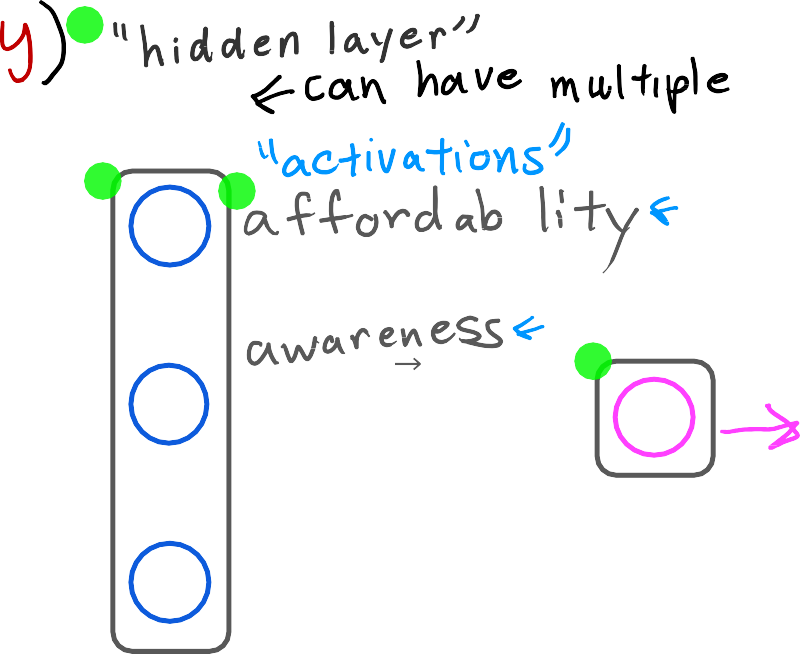 y) "hidden layer"
← can have multiple
"activations"
affordab lity ←
awareness ←
→